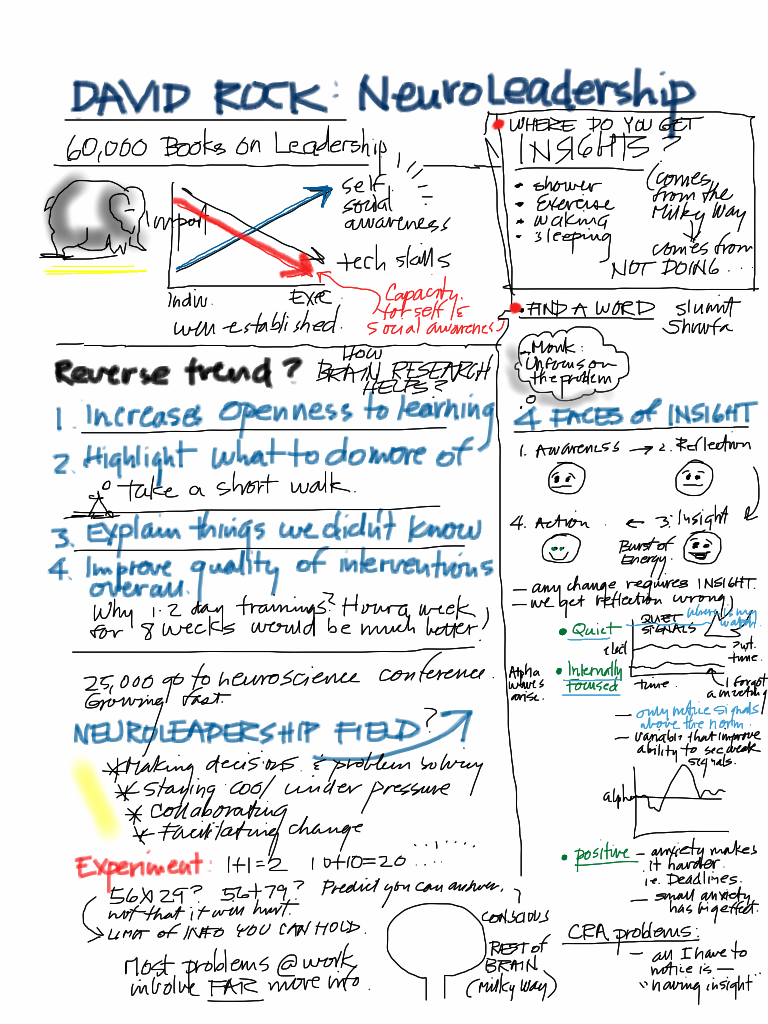 DAVID ROCK: NeuroLeadership
60,000 Books on Leadership
Import
self
social
awareness
tech skills
Indiv.
Exec
well-established.
Capacity
for self &
social awareness
Reverse trend?
HOW
BRAIN RESEARCH
HELPS?
1. Increases openness to learning
2. Highlight what to do more of
take a short walk.
3. Explain things we didn't know
4. Improve quality of interventions
overall.
Why 1-2 day trainings? Hour a week
for 8 weeks would be much better
25,000 go to neuroscience conference.
Growing fast.
NEUROLEADERSHIP FIELD?
* Making decisions & problem solving
* Staying cool under pressure
* Collaborating
* Facilitating change
Experiment: 1+1=2 10+10=20 ....
56x29? 56+79? Predict you can answer.
not that it will hurt.
LIMIT OF INFO YOU CAN HOLD.
Most problems @ work
involve FAR more info.
CONSCIOUS
REST of
BRAIN
(Milky Way)
WHERE DO YOU GET
INSIGHTS?
• shower
• Exercise
• waking
• sleeping
(comes
from the
Milky Way
comes from
NOT DOING...
• FIND A WORD
Monk:
Unfocus on
the problem
4 FACES of INSIGHT
1. AWARENESS → 2. Reflection
4. Action ← 3. Insight
Burst of
Energy.
— any change requires INSIGHT.
— we get reflection wrong
• Quiet
QUIET
SIGNALS
where is my
watch
elect
time.
• Internally
focused
Alpha
waves
arise.
time.
I forgot
a meeting
— only notice signals
above the norm.
— variables that improve
ability to see weak
signals.
alpha
• positive
— anxiety makes
it harder.
i.e. Deadlines.
— small anxiety
has big effect.
CRA problems:
— all I have to
notice is —
"having insight"